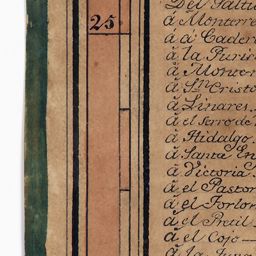 Del Saltil
25
á Monterre
á á Cader
á la Puris
á Monte-r
á Sn. Cristo
á Linares.
á el Serro de
á Hidalgo.
á Santa En
á Victoria
á el Pastor
á el Forlon
á el Preul
á el Cojo—
á la